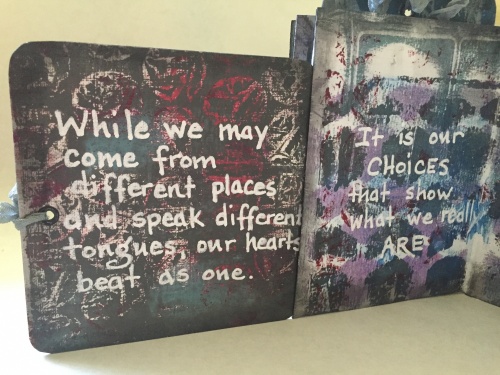 While we may
come from
different places
and speak different
tongues, our hearts
beat as one.
It is our
CHOiCES
that show
what we really
ARE